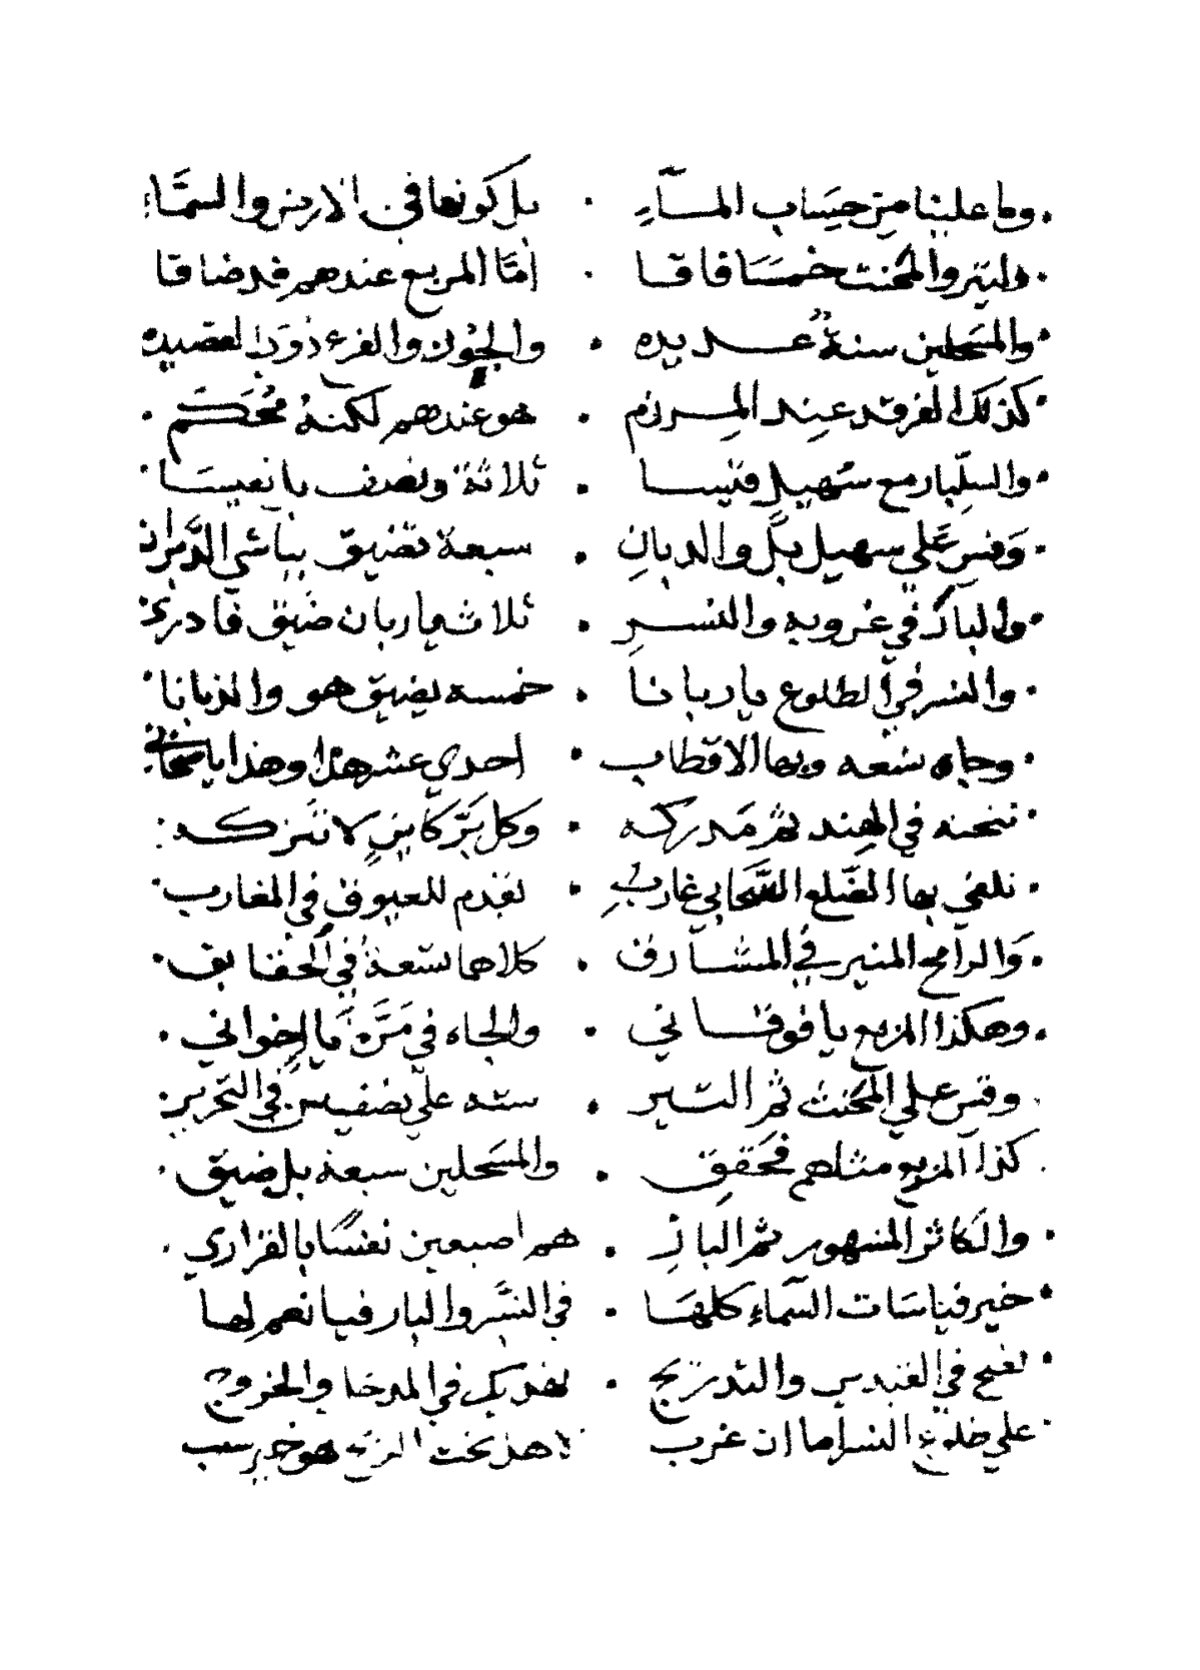 وما علينا من حساب الماء . بل كونها في الارض والسماء
والتير والمحنث خمسا فاقا . أما المربع عندهم قد ضاقا
والمسحلين ستة عديده . والجون والفرع ذوي العصيده
كذلك الفرقد عند المرزم . هو عندهم لكنه محكم
والسلبار مع سهيل قيسا . ثلاثة ونصف يا نفيسا
وقس على سهيل بل والدبان . سبعة تضيق بباشي الدبران
والبار في غروبه والنسر . ثلاث يا ربان ضيق فادري
والنسر في الطلوع يا ربانا . خمسه يضيق هو والذبانا
وجاه تسعه وبها الاقطاب . احدي عشر هذا وهذا يا
نتخته في الهند ثم مدركه . وكل بر كاين لا تتركه
تلقي بها الضلع السحابي غارب . تقدم للعيوق في المغارب
والرامح المنير في المشارق . كلاهما تسعة في الحقايق
وهكذا المربع يا فوقاني . والجاه في مرة يا اخواني
وقس علي المحنث ثم التير . سته علي نصفين في التحرير
كذا المربع مثلهم فحقق . والمسحلين سبعة بل ضيق
والكاثر المشهور ثم البار . هم اصبعين نفسا بالقراري
خير قياسات السماء كلها . في النسر والبار فيا نعم لها
تفتح في القنديس والتدريج . تفديك في المدخل والخروج
علي طلوع النسر اما ان غرب . تحت المربع هو خير سبب